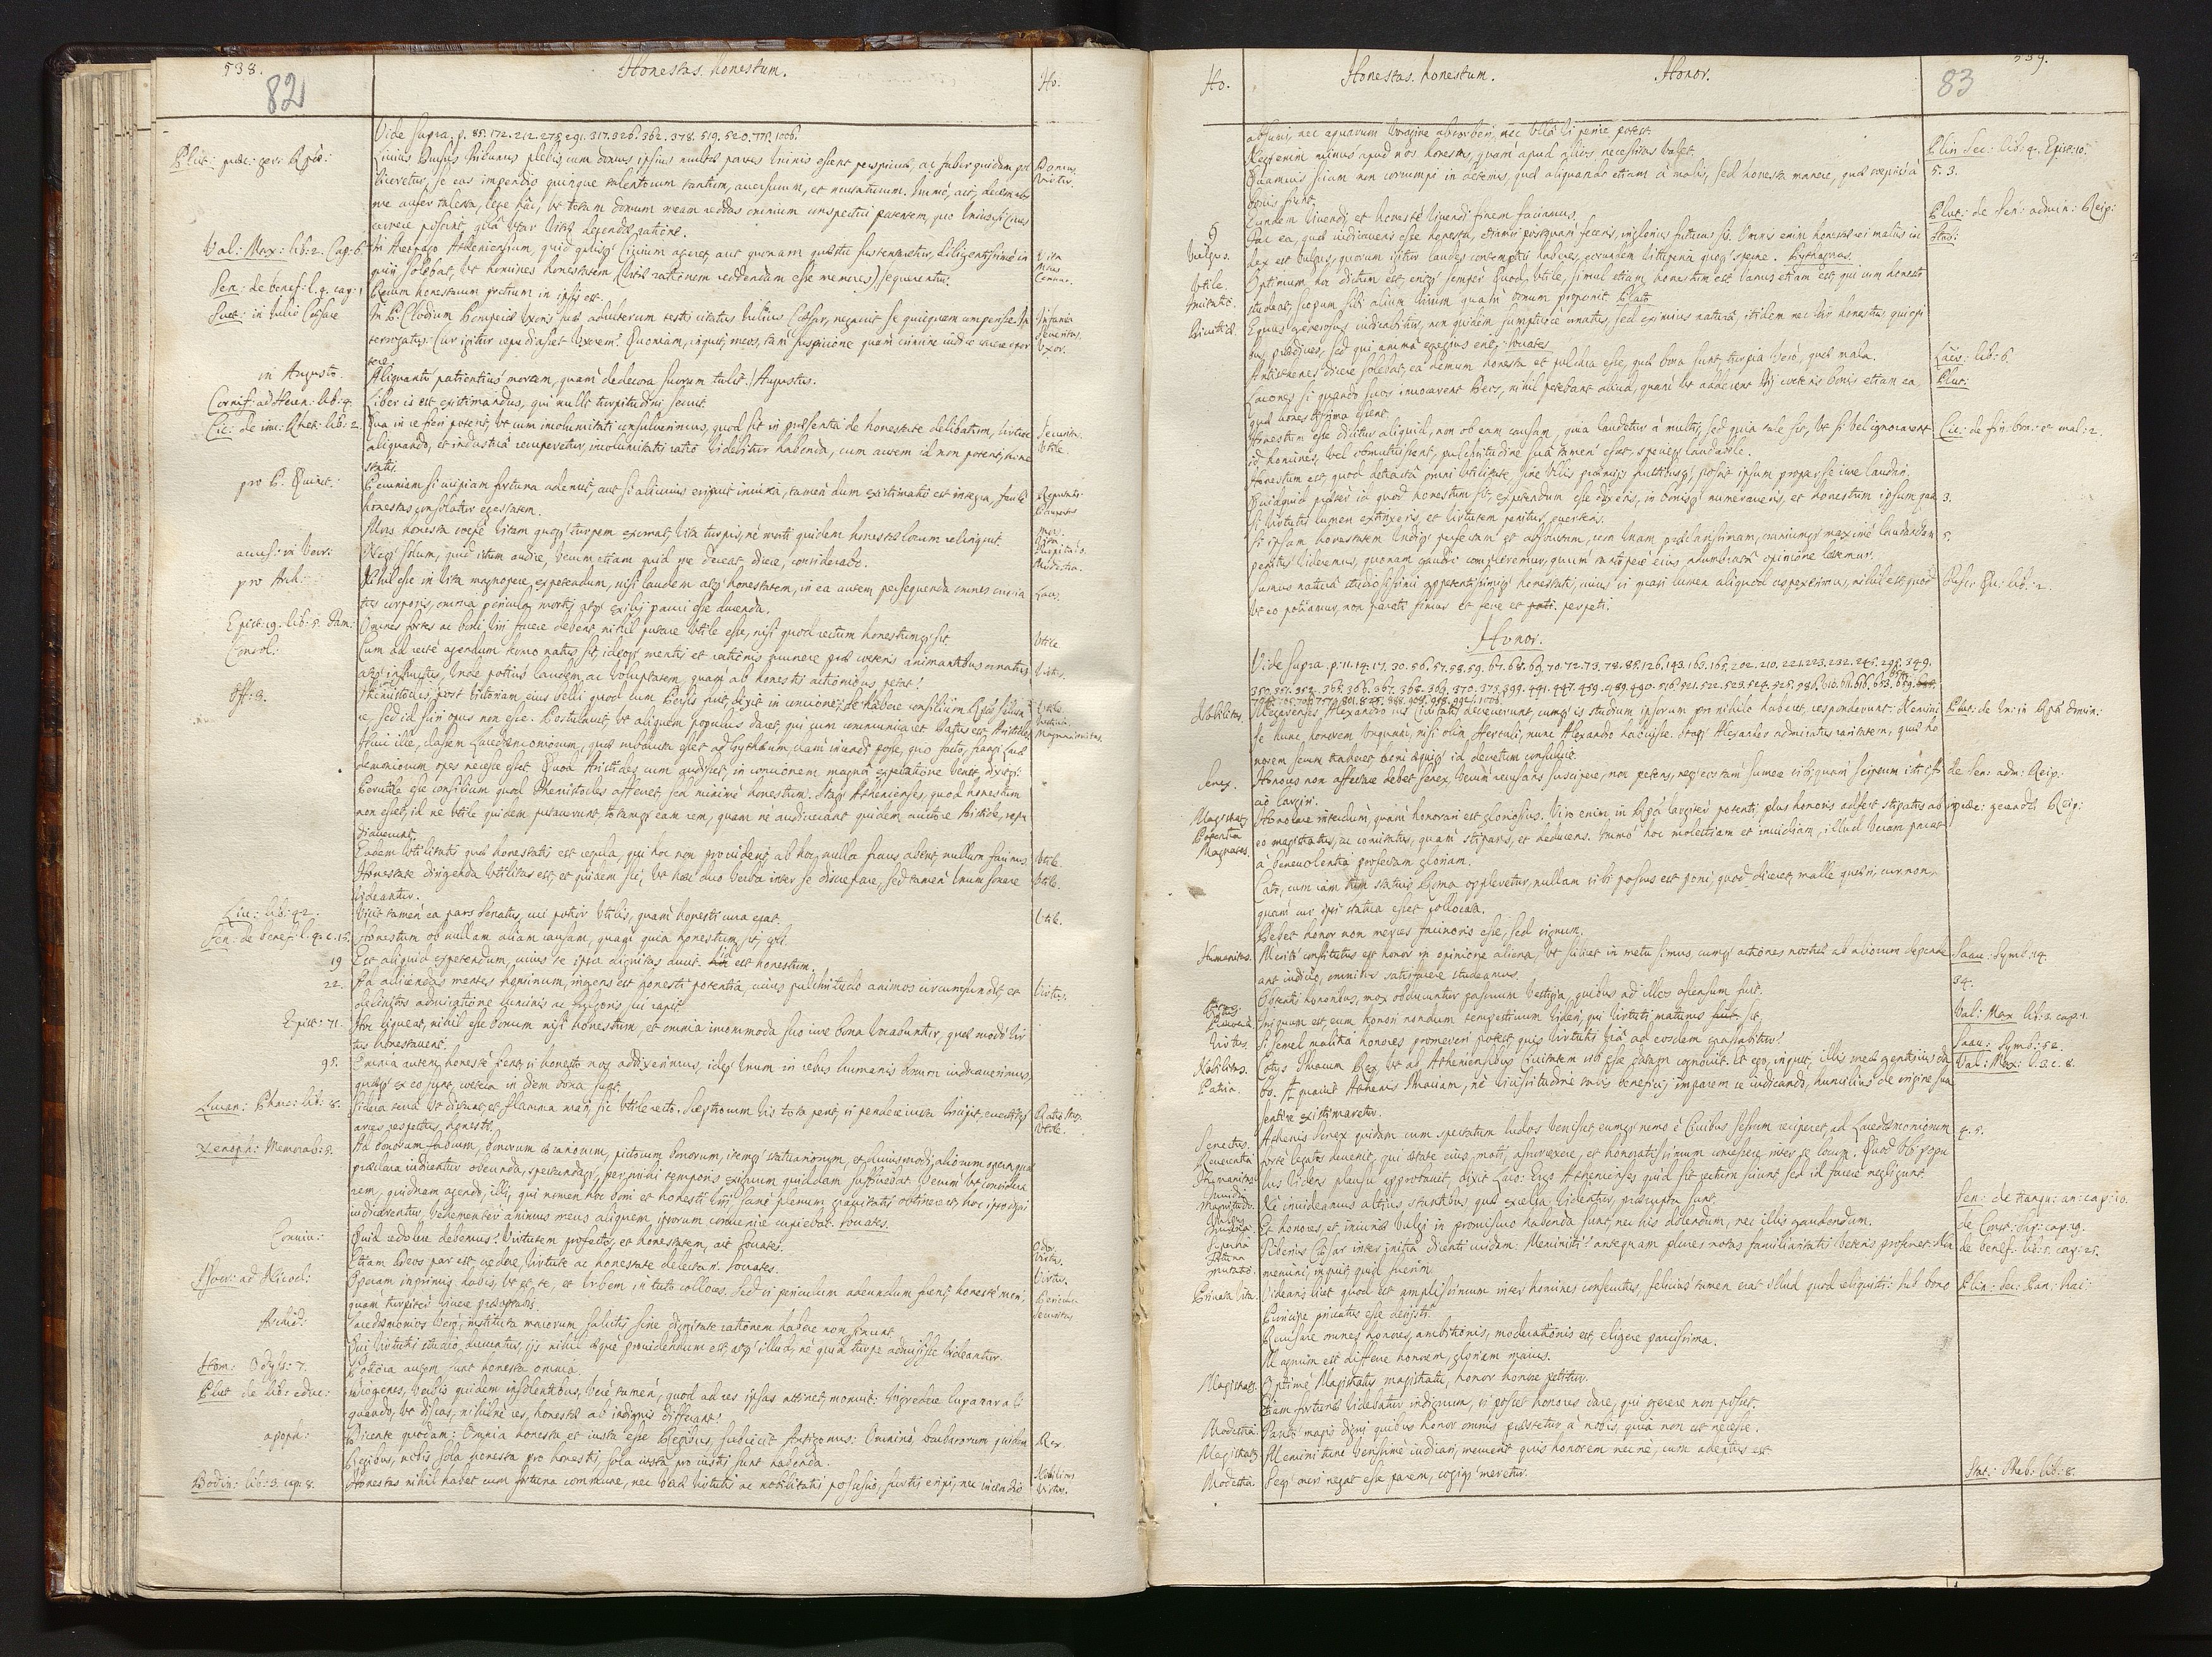 538.
82
Honestas. honestum.
Ho.
Vide supra. p. 85. 172. 212. 275. 291. 317. 326. 362. 378. 519. 520. 775. 1006.
Plut: praec: ger: Reip:
Livius Drusus tribunus plebis, cum domus ipsius multae partes vicinis essent perspicuae, ac faber quidam pol
liceretur, se eas impendio quinque talentorum tantum, aversurum, et mutaturum. Immo, ait, decem a
me aufer talenta, lege hac, ut totam domum meam reddas omnium conspectui patentem, quo universi cives
cernere possint, qua utar vitae degendae ratione.
Val: Max: lib: 2. Cap: 6.
In Areopago Atheniensium, quid quisque civium ageret, aut quonam quaestu sustentaretur, diligentissime in
quiri solebat, ut homines honestatem (vitae rationem reddendam esse memores) sequerentur.
Sen: de benef: l. 4. cap: 1
Rerum honestarum pretium in ipsis est.
Suet: in Iulio Caesare
In P. Clodium Pompeiae uxoris suae adulterum testis citatus Iulius Caesar, negavit se quicquam comperisse. In
terrogatus: Cur igitur repudiasset uxorem? Quoniam, inquit, meos, tam suspicione quam crimine iudico carere opor
tere.
in Augusto.
Aliquanto patientius mortem, quam dedecora suorum tulit. Augustus.
Cornif: ad Heren: lib: 4.
Liber is est existimandus, qui nulli turpitudini servit.
Cic: de inv: Rhet: lib: 2.
Qua in re fieri poterit, ut cum incolumitati consuluerimus, quod sit in praesentia de honestate delibatum, virtute
aliquando, et industria recuperetur, incolumitatis ratio videbitur habenda, cum autem id non poterit, hone
statis.
pro P. Quint:
Pecuniam si cuipiam fortuna ademit, aut si alicuius eripuit iniuria, tamen dum existimatio est integra, facile
honestas consolatur egestatem.
Mors honesta saepe vitam quoque turpem exornat, vita turpis, ne morti quidem honestae locum relinquit
accus: in Verr:
Neque solum, quid istum audire, verum etiam quid me deceat dicere, considerabo.
pro Arch:
Nihil esse in vita magnopere expetendum, nisi laudem atque honestatem, in ea autem persequenda omnes crucia
tus corporis, omnia pericula mortis atque exilii parvi esse ducenda.
Epist: 19. lib: 5. Fam:
Omnes fortes ac boni viri facere debent, nihil putare utile esse, nisi quod rectum honestumque sit
Consol:
Cum ad recte agendum homo natus sit, ideoque mentis et rationis munere prae ceteris animantibus ornatus
atque instructus, unde potius laudem, ac voluptatem, quam ab honestis actionibus petat?
Off: 3.
Themistocles, post victoriam eius belli quod cum Persis fuit, dixit in concione; se habere consilium Reip. saluta
re, sed id sciri opus non esse. Postulavit, ut aliquem populus daret, qui cum communicaret. Datus est Aristides
Huic ille, classem Lacedaemoniorum, quae subducta esset ad Gytheum clam incendi posse, quo facto, frangi Lace
daemoniorum opes necesse esset. Quod Aristides cum audisset, in concionem magna expectatione venit, dixitque
Perutile esse consilium quod Themistocles afferret, sed minime honestum. Itaque Athenienses, quod honestum
non esset, id ne utile quidem putaverunt, totamque eam rem, quam ne audierant quidem, auctore Aristide, repu
diaverunt.
Eadem utilitatis quae honestatis est regula, qui hoc non providerit, ab hoc nulla fraus aberit, nullum facinus
Honestate dirigenda utilitas est, et quidem sic, ut haec duo verba inter se discrepare, sed tamen unum sonare
videantur.
Liv: lib: 42.
Vicit tamen ea pars Senatus, cui potior utilis, quam honesti cura erat.
Sen: de benef: l. 4. c. 15.
Honestum ob nullam aliam causam, quam quia honestum sit, colit.
19
Est aliquid expetendum, cuius te ipsa dignitas ducit. id est honestum.
22.
Ad alliciendas mentes hominum, ingens est honesti potentia, cuius pulchritudo animos circumfundit, et
delinitos admiratione luminis ac fulgoris sui rapit.
Epist: 71.
Hoc liqueat, nihil esse bonum nisi honestum, et omnia incommoda suo iure bona vocabuntur, quae modo vir
tus honestaverit.
95.
Omnia autem honeste fient, si honesto nos addixerimus, idque unum in rebus humanis bonum iudicaverimus,
quaeque ex eo sunt, cetera in diem bona sunt.
Lucan: Phars: lib: 8.
Sidera terra ut distant, et flamma mari, sic utile recto. Sceptrorum vis tota perit, si pendere iusta incipit, evertitque
arces respectus honesti.
Xenoph: Memorab: 5.
Ad bonorum fabrum, bonorum aerariorum, pictorum bonorum, itemque statuariorum, et huiusmodi aliorum opera quae
praeclara iudicentur obeunda, spectandaque, per mihi temporis exiguum quiddam sufficiebat. Verum ut considera
rem, quidnam agendo, illi, qui nomen hoc boni et honesti viri, sane plenum gravitatis obtinerent, hoc ipso digni
iudicarentur, vehementer animus meus aliquem ipsorum convenire cupiebat. Socrates.
Conviv:
Quid redolere debemus? Virtutem profecto, et honestatem, ait Socrates.
Etiam Deos par est, credere, virtute ac honestate delectari. Socrates.
Isocr: ad Nicocl:
Operam inprimis dabis, ut et te, et urbem in tuto colloces. Sed si periculum adeundum fuerit, honeste mori,
quam turpiter vivere praeoptabis.
Archid:
Lacedaemonios vero, instituta maiorum salutis sine dignitate rationem habere non sinunt.
Qui virtutis studio ducuntur, iis nihil aeque providendum est, atque illud, ne quid turpe admisisse videantur.
Hom: Odyss: 7.
Potiora autem sunt honesta omnia.
Plut: de lib: educ:
Diogenes, verbis quidem insolentibus, vere tamen, quod ad res ipsas attinet, monuit: Ingredere lupanar ali
quando, ut discas, nihilne res, honestae ab indignis differant?
apoph:
Dicente quodam: Omnia honesta et iusta esse Regibus, subiecit Antigonus: Omnino, barbarorum quidem
Regibus, nobis sola honesta pro honestis, sola iusta pro iustis sunt habenda.
Bodin: lib: 3. cap: 8.
Honestas nihil habet cum fortuna commune, nec vera virtutis ac nobilitatis possessio, furtis eripi, nec incendio
Domus.
Virtus.
Vita
Infamia
Severitas.
Uxor.
Utile.
Mors.
Vita
Modestia.
Laus.
Utile.
Virtus.
Utile
Utile.
Utile.
Utile.
Virtus.
Utile.
Odor.
Virtus.
Virtus.
Rex.
Nobilitas
Virtus.
Ho.
Honestas. honestum.
Honor.
83
539.
absumi, nec aquarum voragine absorberi, nec ulla vi perire potest.
Nec enim minus apud nos honestas, quam apud alios necessitas valet.
Plin. Sec: lib: 4. Epist: 10.
Quamvis sciam non corrumpi in deterius, quae aliquando etiam a malis, sed honesta manere, quae saepius a
5. 3.
bonis fiunt.
Eundem vivendi et honeste vivendi finem faciamus.
Plut: de Sen: admin: Reip:
Fac ea, quae iudicaveris esse honesta, etiamsi postquam feceris, inglorius futurus sis. Omnis enim honestae rei malus iu
Stob:
dex est vulgus, quorum igitur laudes contemptui habueris, eorundem vituperia quoque sperne. Pythagoras.
Vulgus.
Optimum hoc dictum est, eritque semper: Quod utile, simul etiam honestum est
Utile.
studeat, scopum sibi alium vivere quam bonum proponit. Plato
Equus generosus iudicabitur, non quidem sumptuose ornatus, sed eximius natura, itidem nec vir honestus qui opi
bus praedives, sed qui animo egregius erit. Socrates
Antisthenes dicere solebat, ea demum honesta et pulchra esse, quae bona sunt, turpia vero, quae mala.
Laer: lib: 6.
Lacones si quando suos invocarent Deos, nihil petebant aliud, quam ut adderent dii ceteris bonis etiam ea
Plut:
quae honestissima essent.
Honestum esse dicitur aliquid, non ob eam causam, quia laudetur a multis, sed quia tale sit, ut si vel ignorarent
Cic: de fin: bon: et mal: 2.
id homines, vel obmutuissent, pulchritudine sua tamen esset, specieque laudabile.
Honestum est, quod detracta omni utilitate, sine ullis praemiis fructibusque, possit ipsum propter se iure laudari.
Quidquid praeter id quod honestum sit, expetendum esse dixeris, in bonisque numeraveris, et honestum ipsum qua
3.
si virtutis lumen extinxeris, et virtutem penitus everteris.
Si ipsam honestatem undique perfectam et absolutam, rem unam praeclarissimam, omniumque maxime laudandam
5.
penitus videremus, quonam gaudio compleremur, quum tantopere eius adumbrata opinione laetemur.
Sumus natura studiosissimi appetentissimique honestatis, cuius si quasi lumen aliquod aspexerimus, nihil est, quod
Tusc: Qu: lib: 2.
ut eo potiamur, non parati simus et ferre et perpeti.
Honor.
Nobilitas.
Plut: de Un: in Rep: domin:
Megarenses, Alexandro ius civitatis decreverunt, cumque is studium ipsorum pro nihilo haberet, responderunt: Nemini
se hunc honorem unquam, nisi olim Herculi, nunc Alexandro habuisse. Itaque Alexander admiratus raritatem, quae ho
norem secum traheret boni aequique id decretum consuluit.
Senex.
Honores non affectare debet senex, verum recusans suscipere, non petens, neque eos tam sumere sibi, quam seipsum
de Sen: adm: Reip:
Magistratus
Potentia
Magnates.
Honorare interdum, quam honorari est gloriosius. Viro enim, in Rep. largiter potenti, plus honoris adfert stipatus ab
praec: gerendae Reip:
eo magistratus, ac comitatus, quam stipans, et deducens. Immo hoc molestiam et invidiam, illud veram praebet
a benevolentia profectam gloriam.
Cato, cum iam statuis Roma oppleretur, nullam sibi passus est poni, quod diceret, malle quaeri, cur non,
quam cur ipsi statua esset collocata.
Debet honor non merces facinoris esse, sed signum.
Humanitas.
Merito constitutus est honor in opinione aliena, ut scilicet in metu simus, cumque actiones nostrae ab aliorum depende
Saav: Symb: 14.
ant iudicio, omnibus satisfacere studeamus.
34.
Obtentis honoribus, mox obducuntur passuum vestigia, quibus ad illos ascensum fuit.
Iniquum est, eum honori nondum tempestivum videri, qui virtuti maturus sit.
Val: Max: lib: 3. cap: 1.
Virtus.
Si semel malitia honores promereri potest, quis virtutis via ad eosdem grassabitur?
Saav: Symb: 52.
Nobilitas.
Patria.
Cotys Thracum Rex, ut ab Atheniensibus civitatem sibi esse datam cognovit. Et ego, inquit, illis meae gentis ius da
Val: Max: l. 3. c. 8.
bo. Aequavit Athenis Thraciam, ne vicissitudine talis beneficii imparem se iudicando, humilius de origine sua
sentire existimaretur.
Senectus.
Reverentia
Humanitas.
Athenis Senex quidam cum spectatum ludos venisset eumque nemo e civibus sessum reciperet, ad Lacedaemoniorum
4. 5.
forte legatos devenit, qui aetate eius moti, assurrexere, et honoratissimum concessere inter se locum. Quod ubi popu
lus videns plausu approbavit, dixit Laco: Ergo Athenienses quid sit rectum sciunt, sed id facere negligunt.
Invidia
Ne invideamus altius stantibus quae excelsa videntur, praerupta sunt.
Sen: de tranqu: an: cap: 10.
Vulgus
Et honores, et iniuriae vulgi in promiscuo habenda sunt, nec his dolendum, nec illis gaudendum.
de Const: Sap: cap: 19.
Superbia
Tiberius Caesar inter initia dicenti cuidam: Meministi? antequam plures notas familiaritatis veteris proferret: Non
de benef: lib: 5. cap: 25.
memini, inquit, quid fuerim.
Privata vita.
Videaris licet quod est amplissimum inter homines consecutus, felicius tamen erat illud quod reliquisti: sub bono
Plin: Sec: Pan: Trai:
Principe privatus esse desisti.
Recusare omnes honores, ambitionis, moderationis est, eligere parcissima.
Magnum est differre honorem, gloriam maius.
Magistratus.
Optime Magistratus magistratu, honor honore petitur.
Etiam fortunae videbatur indignum, si posset honores dare, qui gerere non posset.
Modestia.
Nulli magis digni quibus honor omnis praestetur a nobis, quia non est necesse.
Magistratus
Memini tunc verissime iudicari, meruerit quis honorem necne, cum adeptus est
Modestia.
Seque oneri negat esse parem, cogique meretur.
Stat: Theb: lib: 8.